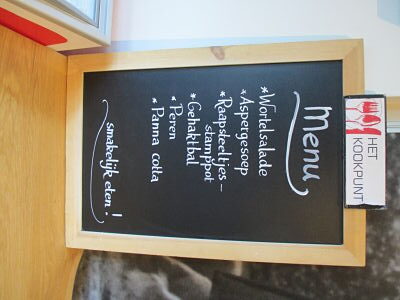 HET
KOOKPUNT
Menu
* Wortelsalade
* Aspergesoep
* Raapsteeltjes-
stamppot
* Gehaktbal
* Peren
* Panna cotta
smakelijk eten!